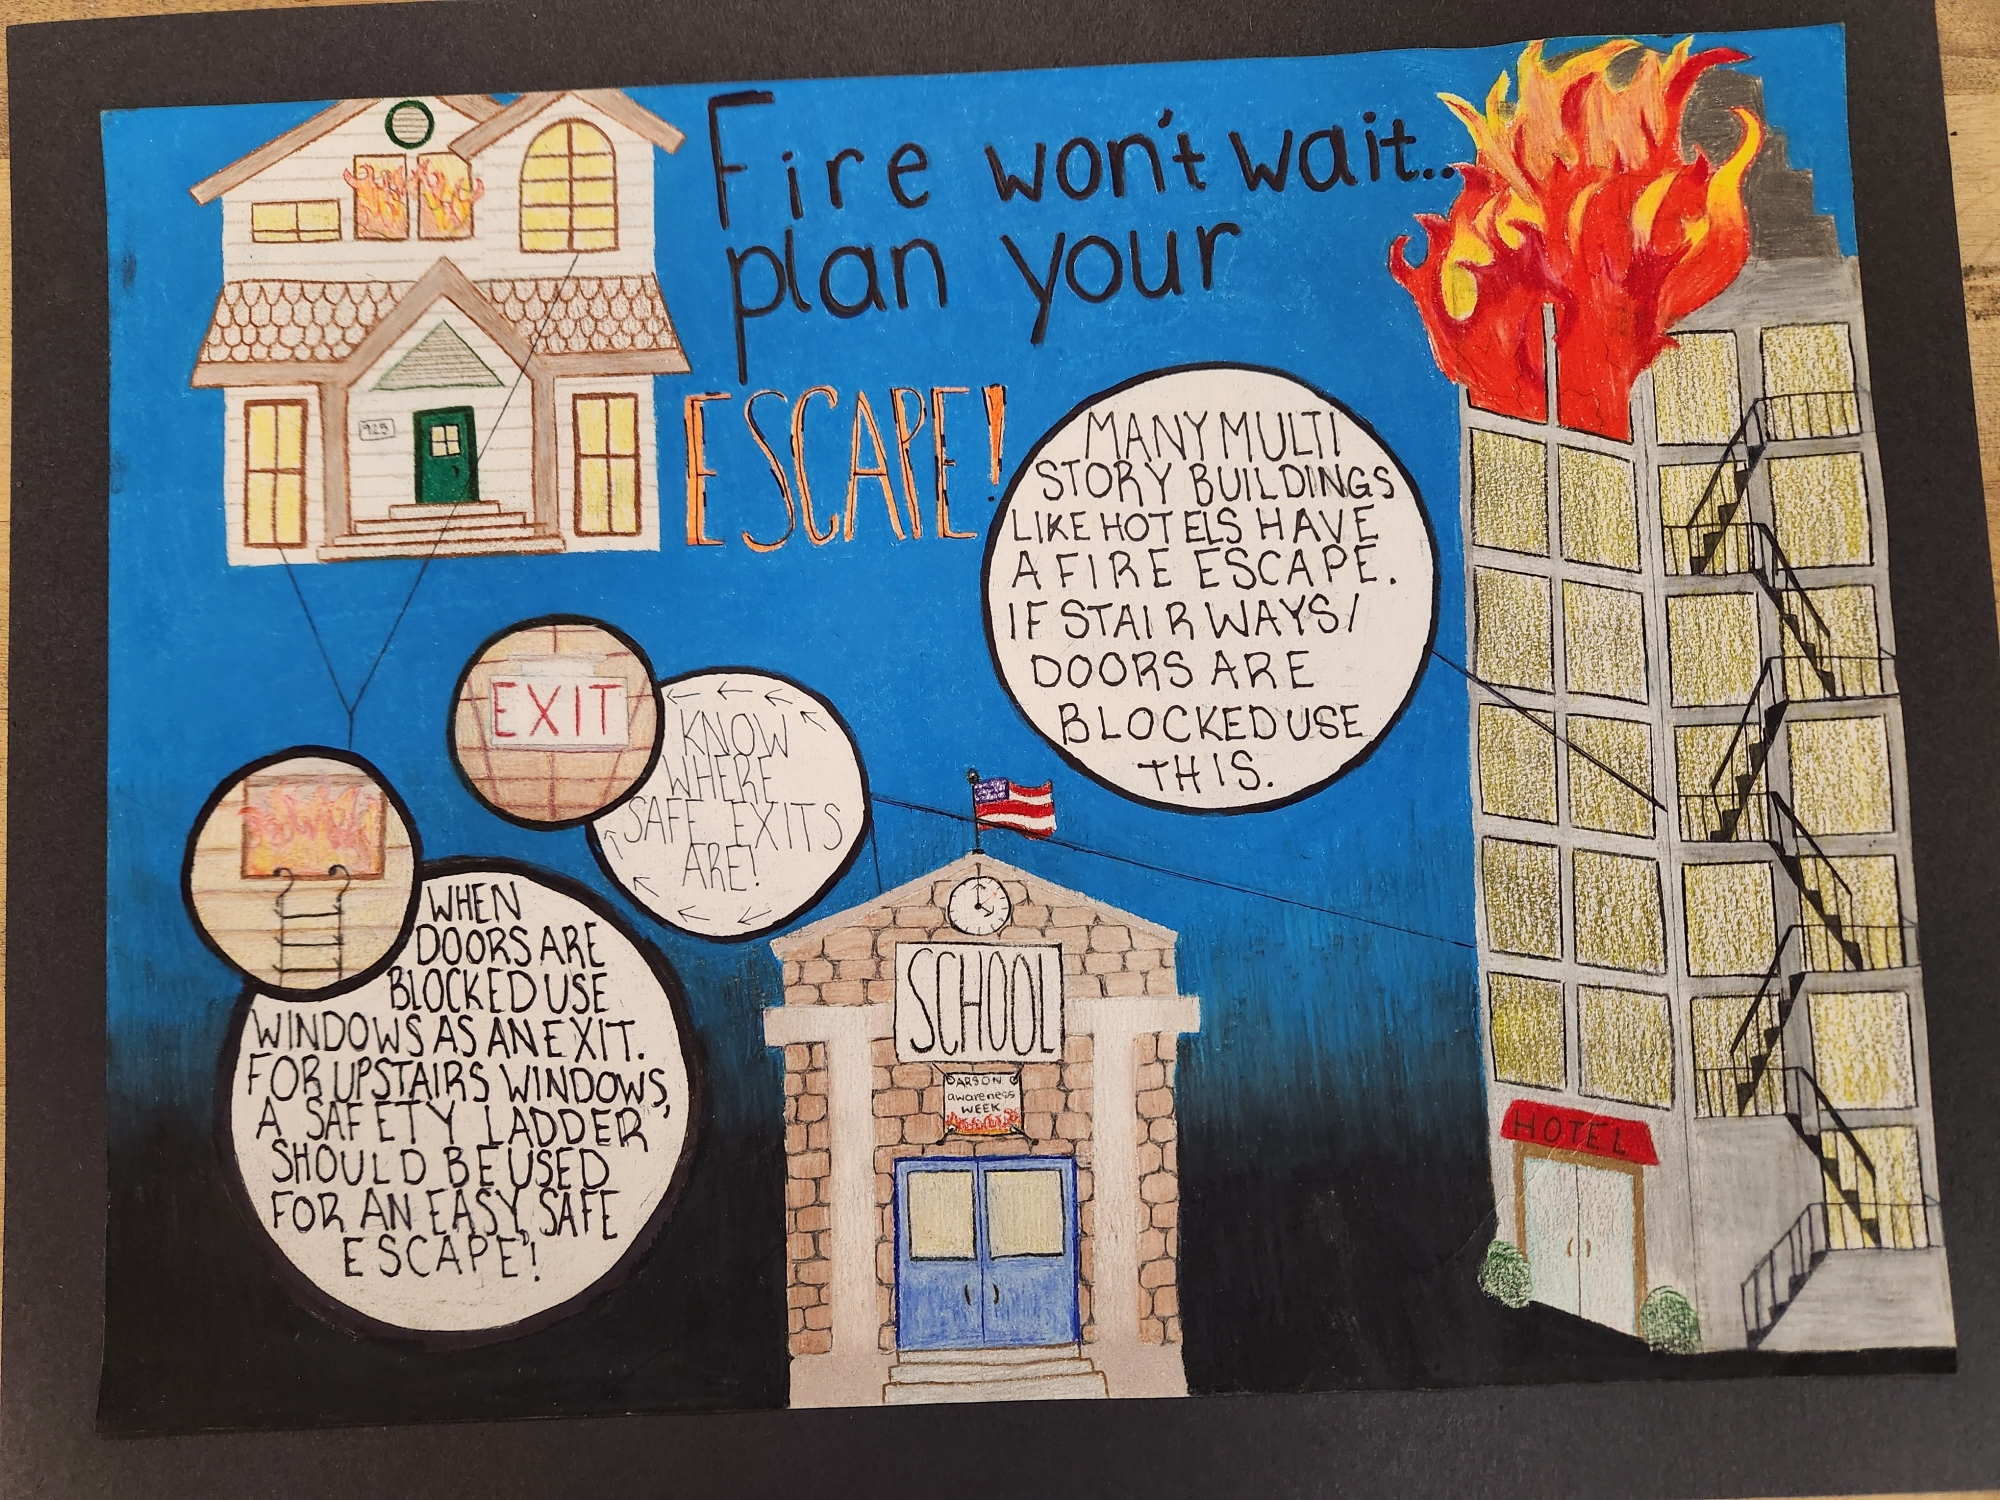 Fire won't wait..
plan your
ESCAPE!
MANY MULTI
STORY BUILDINGS
LIKE HOTELS HAVE
A FIRE ESCAPE.
IF STAIRWAYS/
DOORS ARE
BLOCKED USE
THIS.
925
EXIT
KNOW
WHERE
SAFE EXITS
ARE!
WHEN
DOORS ARE
BLOCKED USE
WINDOWS AS AN EXIT.
FOR UPSTAIRS WINDOWS,
A SAFETY LADDER
SHOULD BE USED
FOR AN EASY, SAFE
ESCAPE!
SCHOOL
ARSON
awareness
WEEK
HOTEL